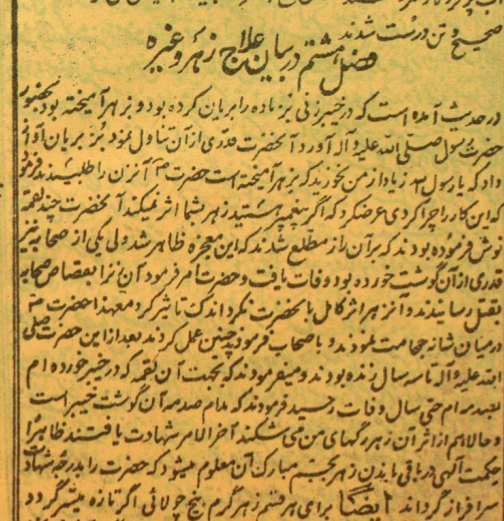 صحیح و تن درست شدند
فصل هشتم در بیان علاج زهر وغیره
در حدیث آمده است که در خیبر زنی بز ماده را بریان کرده بود و بزهر آمیخته بود بحضور
حضرت رسول صلی الله علیه و آله آورد آنحضرت قدری از آن تناول نمود بز بریان آواز
داد که یا رسول زیاد از من نخورند که بزهر آمیخته است حضرت آنزن را طلبیدند فرمود
که این کار را چرا کردی عرض کرد که اگر پیغمبر هستید زهر شما اثر نمیکند آنحضرت چند لقمه
نوش فرموده بودند که بر آن راز مطلع شدند که این معجزه ظاهر شد ولی یکی از صحابه نیز
قدری از آن گوشت خورده بود وفات یافت و حضرت امر فرمود آن زنرا بقصاص صحابه
بقتل رسانیدند و آنزهر اثر کامل با آنحضرت نکرد اندک تاثیر کرد معهذا حضرت
درمیان شانه حجامت نمودند و باصحاب فرمود چنین عمل کردند بعد از این حضرت صلی
الله علیه و آله تا سه سال زنده بودند و میفرمودند که بجهت آن لقمه که در خیبر خورده ام
حتی سال وفات رسید فرمودند که مدام صدمه آن گوشت خیبر است
و حالا هم از اثر آن زهر رگهای من می شکند آخر الامر شهادت یافتند ظاهرا
حکمت آلهی در باقی ماندن زهر بجسم مبارک آن معلوم میشود که حضرت را بدرجه شهادت
سرافراز گرداند ایضا برای هر قسم زهر گرم بیخ چولائی اگر تازه میسر گردد